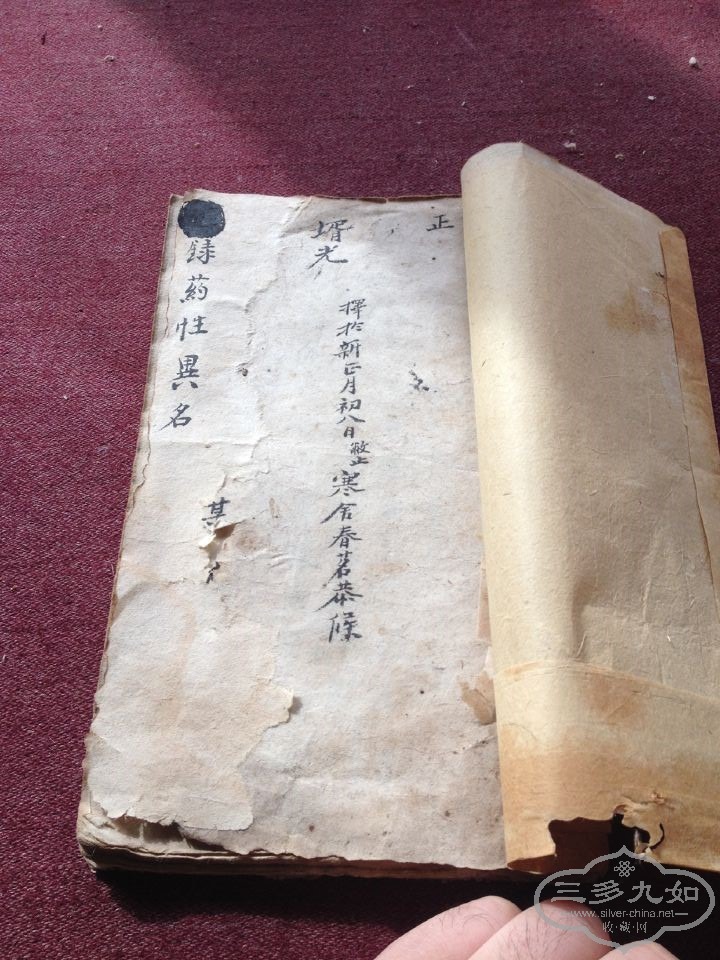 正
壻光
擇於新正月初八日寒舍春茗恭候
某
録葯性異名
三多九如
www.silver-china.net
收·藏·网